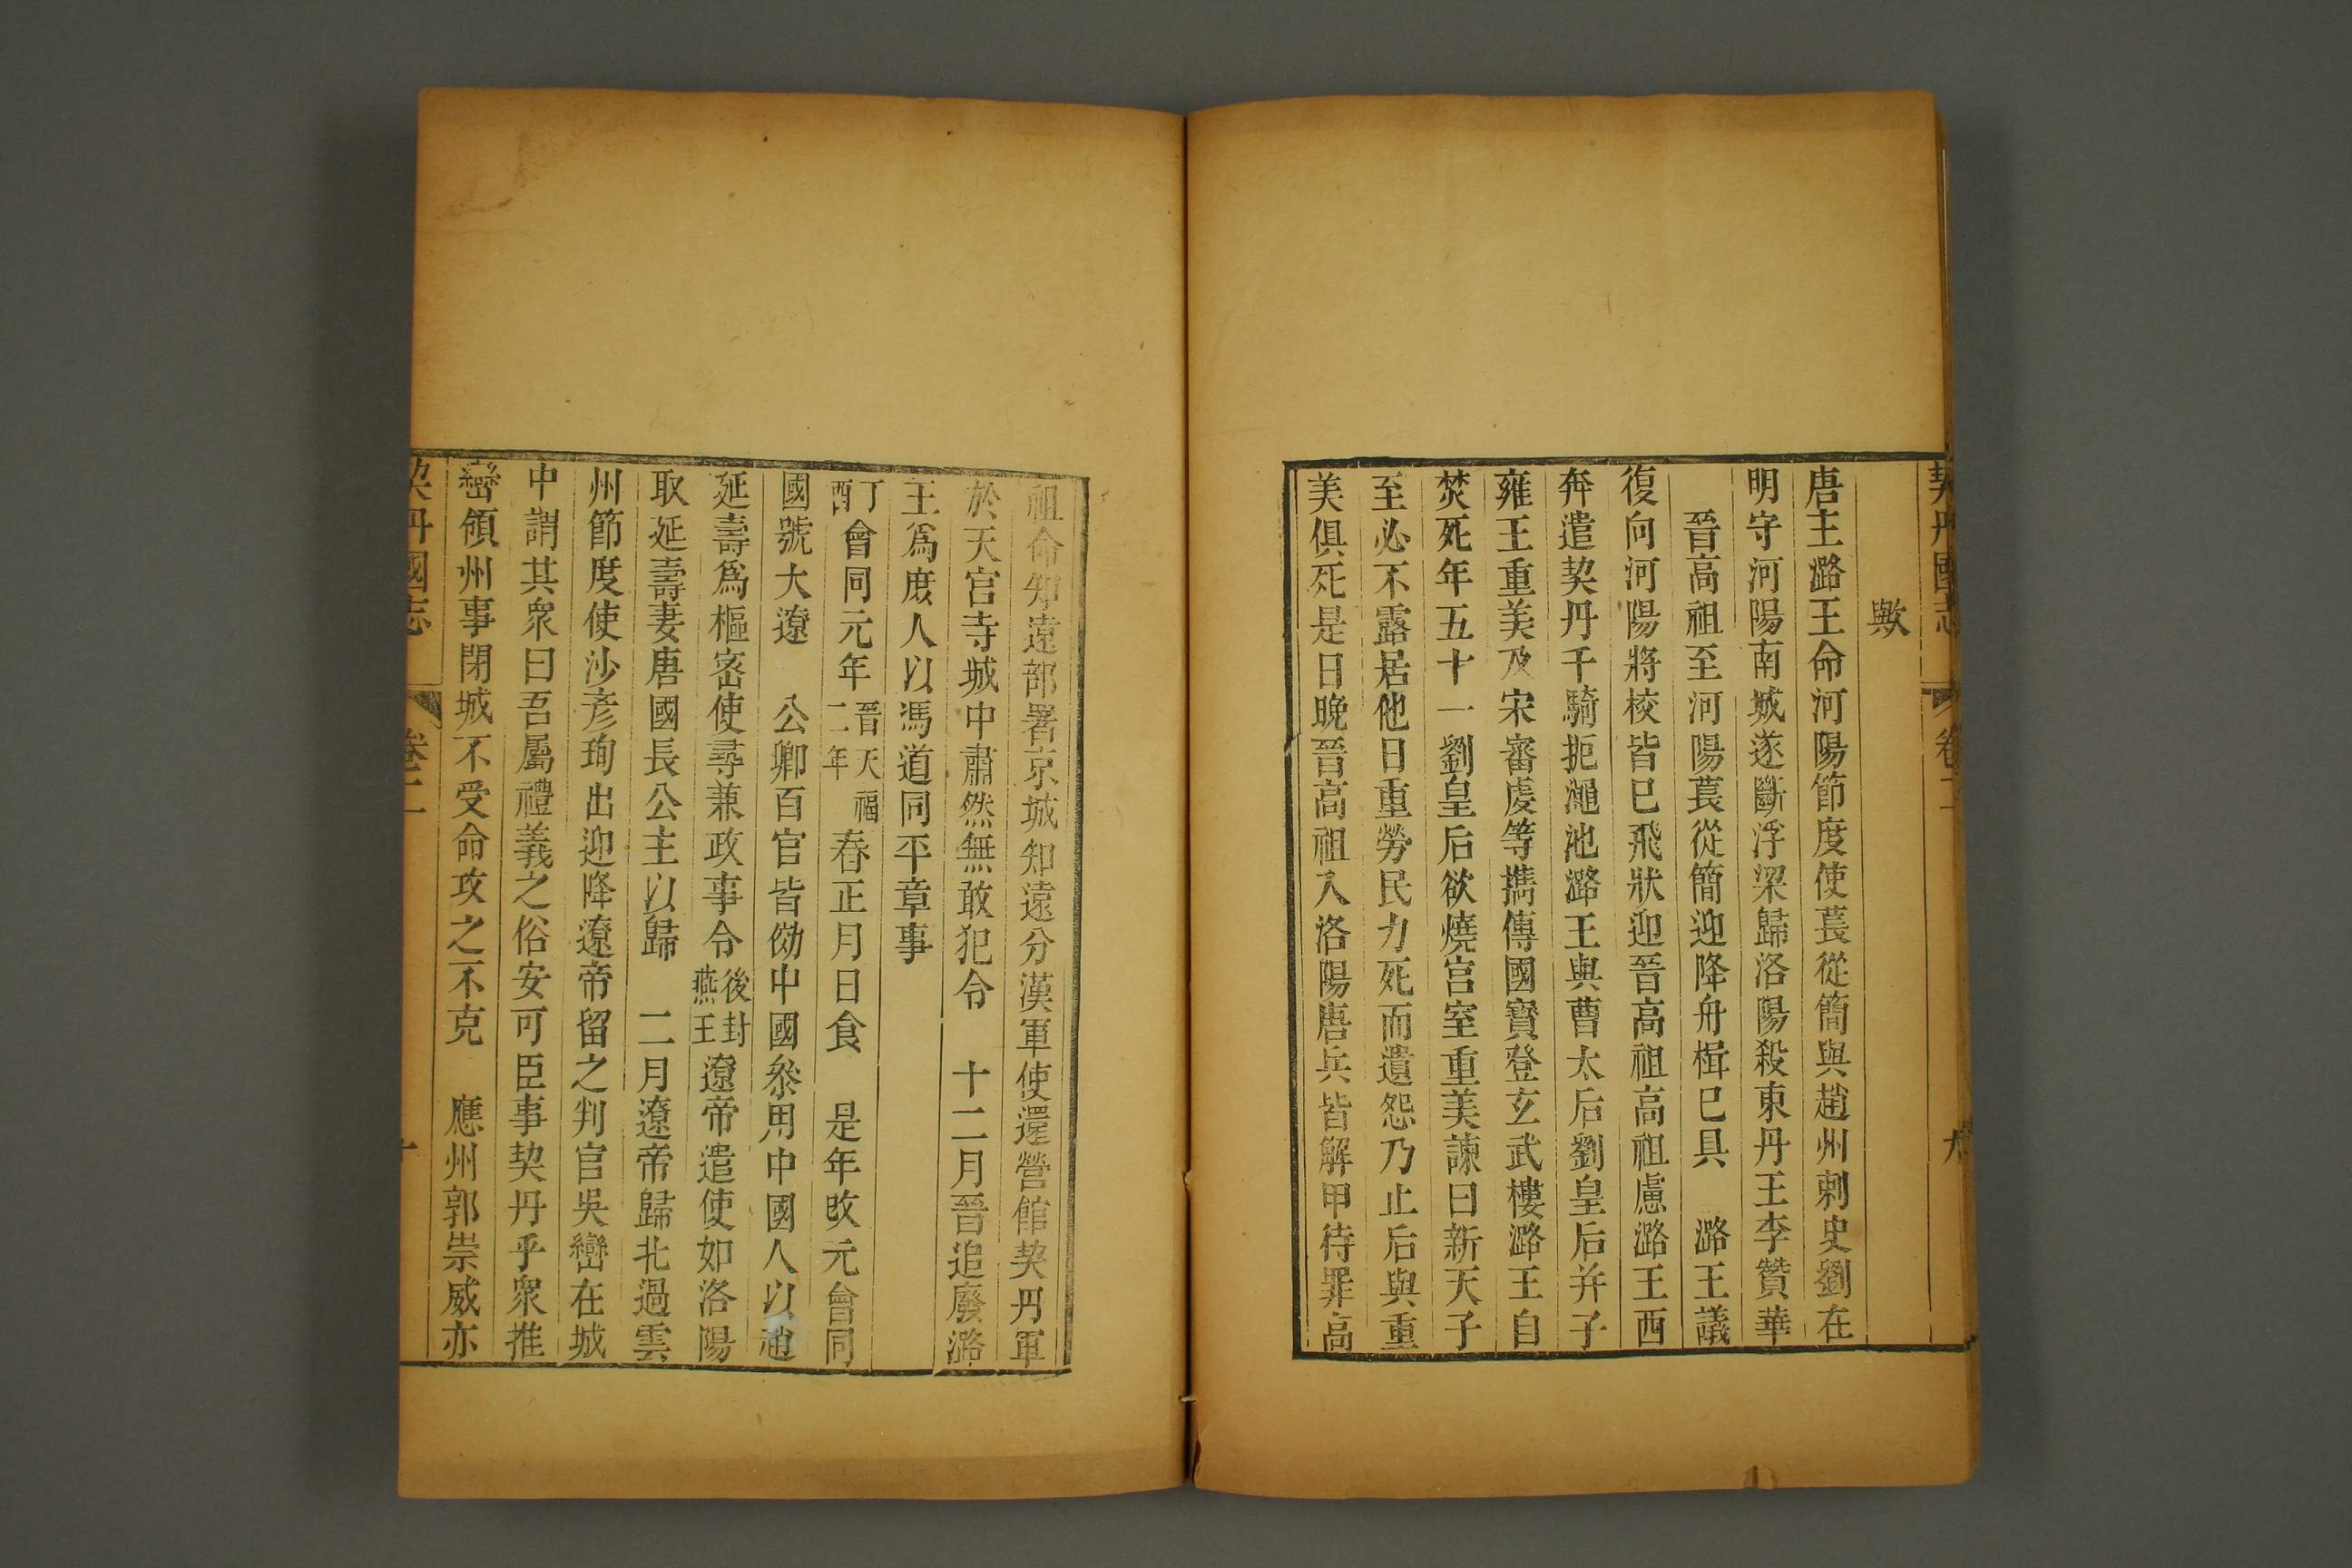 契丹國志 卷二 九
歟
唐主潞王命河陽節度使萇從簡與趙州刺史劉在
明守河陽南城遂斷浮梁歸洛陽殺東丹王李贊華
晉高祖至河陽萇從簡迎降舟楫已具 潞王議
復向河陽將校皆已飛狀迎晉高祖高祖慮潞王西
奔遣契丹千騎扼澠池潞王與曹太后劉皇后并子
雍王重美及宋審虔等擕傳國寶登玄武樓潞王自
焚死年五十一劉皇后欲燒宮室重美諫曰新天子
至必不露居他日重勞民力死而遺怨乃止后與重
美俱死是日晚晉高祖入洛陽唐兵皆解甲待罪高
祖命知遠部署京城知遠分漢軍使還營館契丹軍
於天宮寺城中肅然無敢犯令 十二月晉追廢潞
王爲庶人以馮道同平章事
丁酉會同元年晉天福二年春正月日食 是年改元會同
國號大遼 公卿百官皆倣中國叅用中國人以趙
延壽爲樞宻使尋兼政事令後封燕王遼帝遣使如洛陽
取延壽妻唐國長公主以歸 二月遼帝歸北過雲
州節度使沙彦珣出迎降遼帝留之判官吳巒在城
中謂其衆曰吾屬禮義之俗安可臣事契丹乎衆推
巒領州事閉城不受命攻之不克 應州郭崇威亦
契丹國志 卷二 十